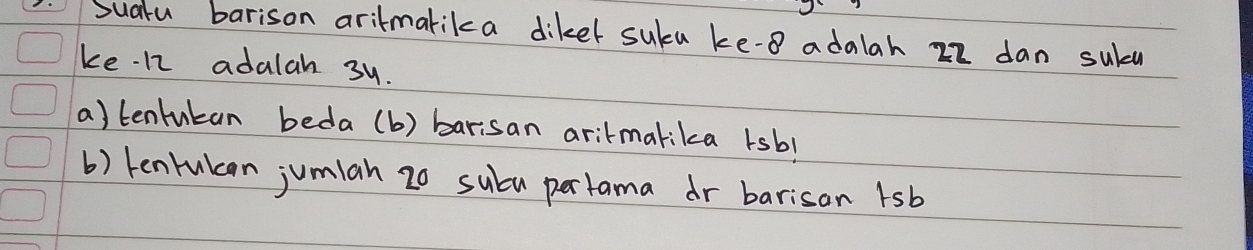 Suatu barison aritmatika diket suku ke-8 adalah 22 dan suku
ke-12 adalah 34.
a) tentukan beda (b) barisan aritmatika tsb!
b) tentukan jumlah 20 suku pertama dr barisan tsb